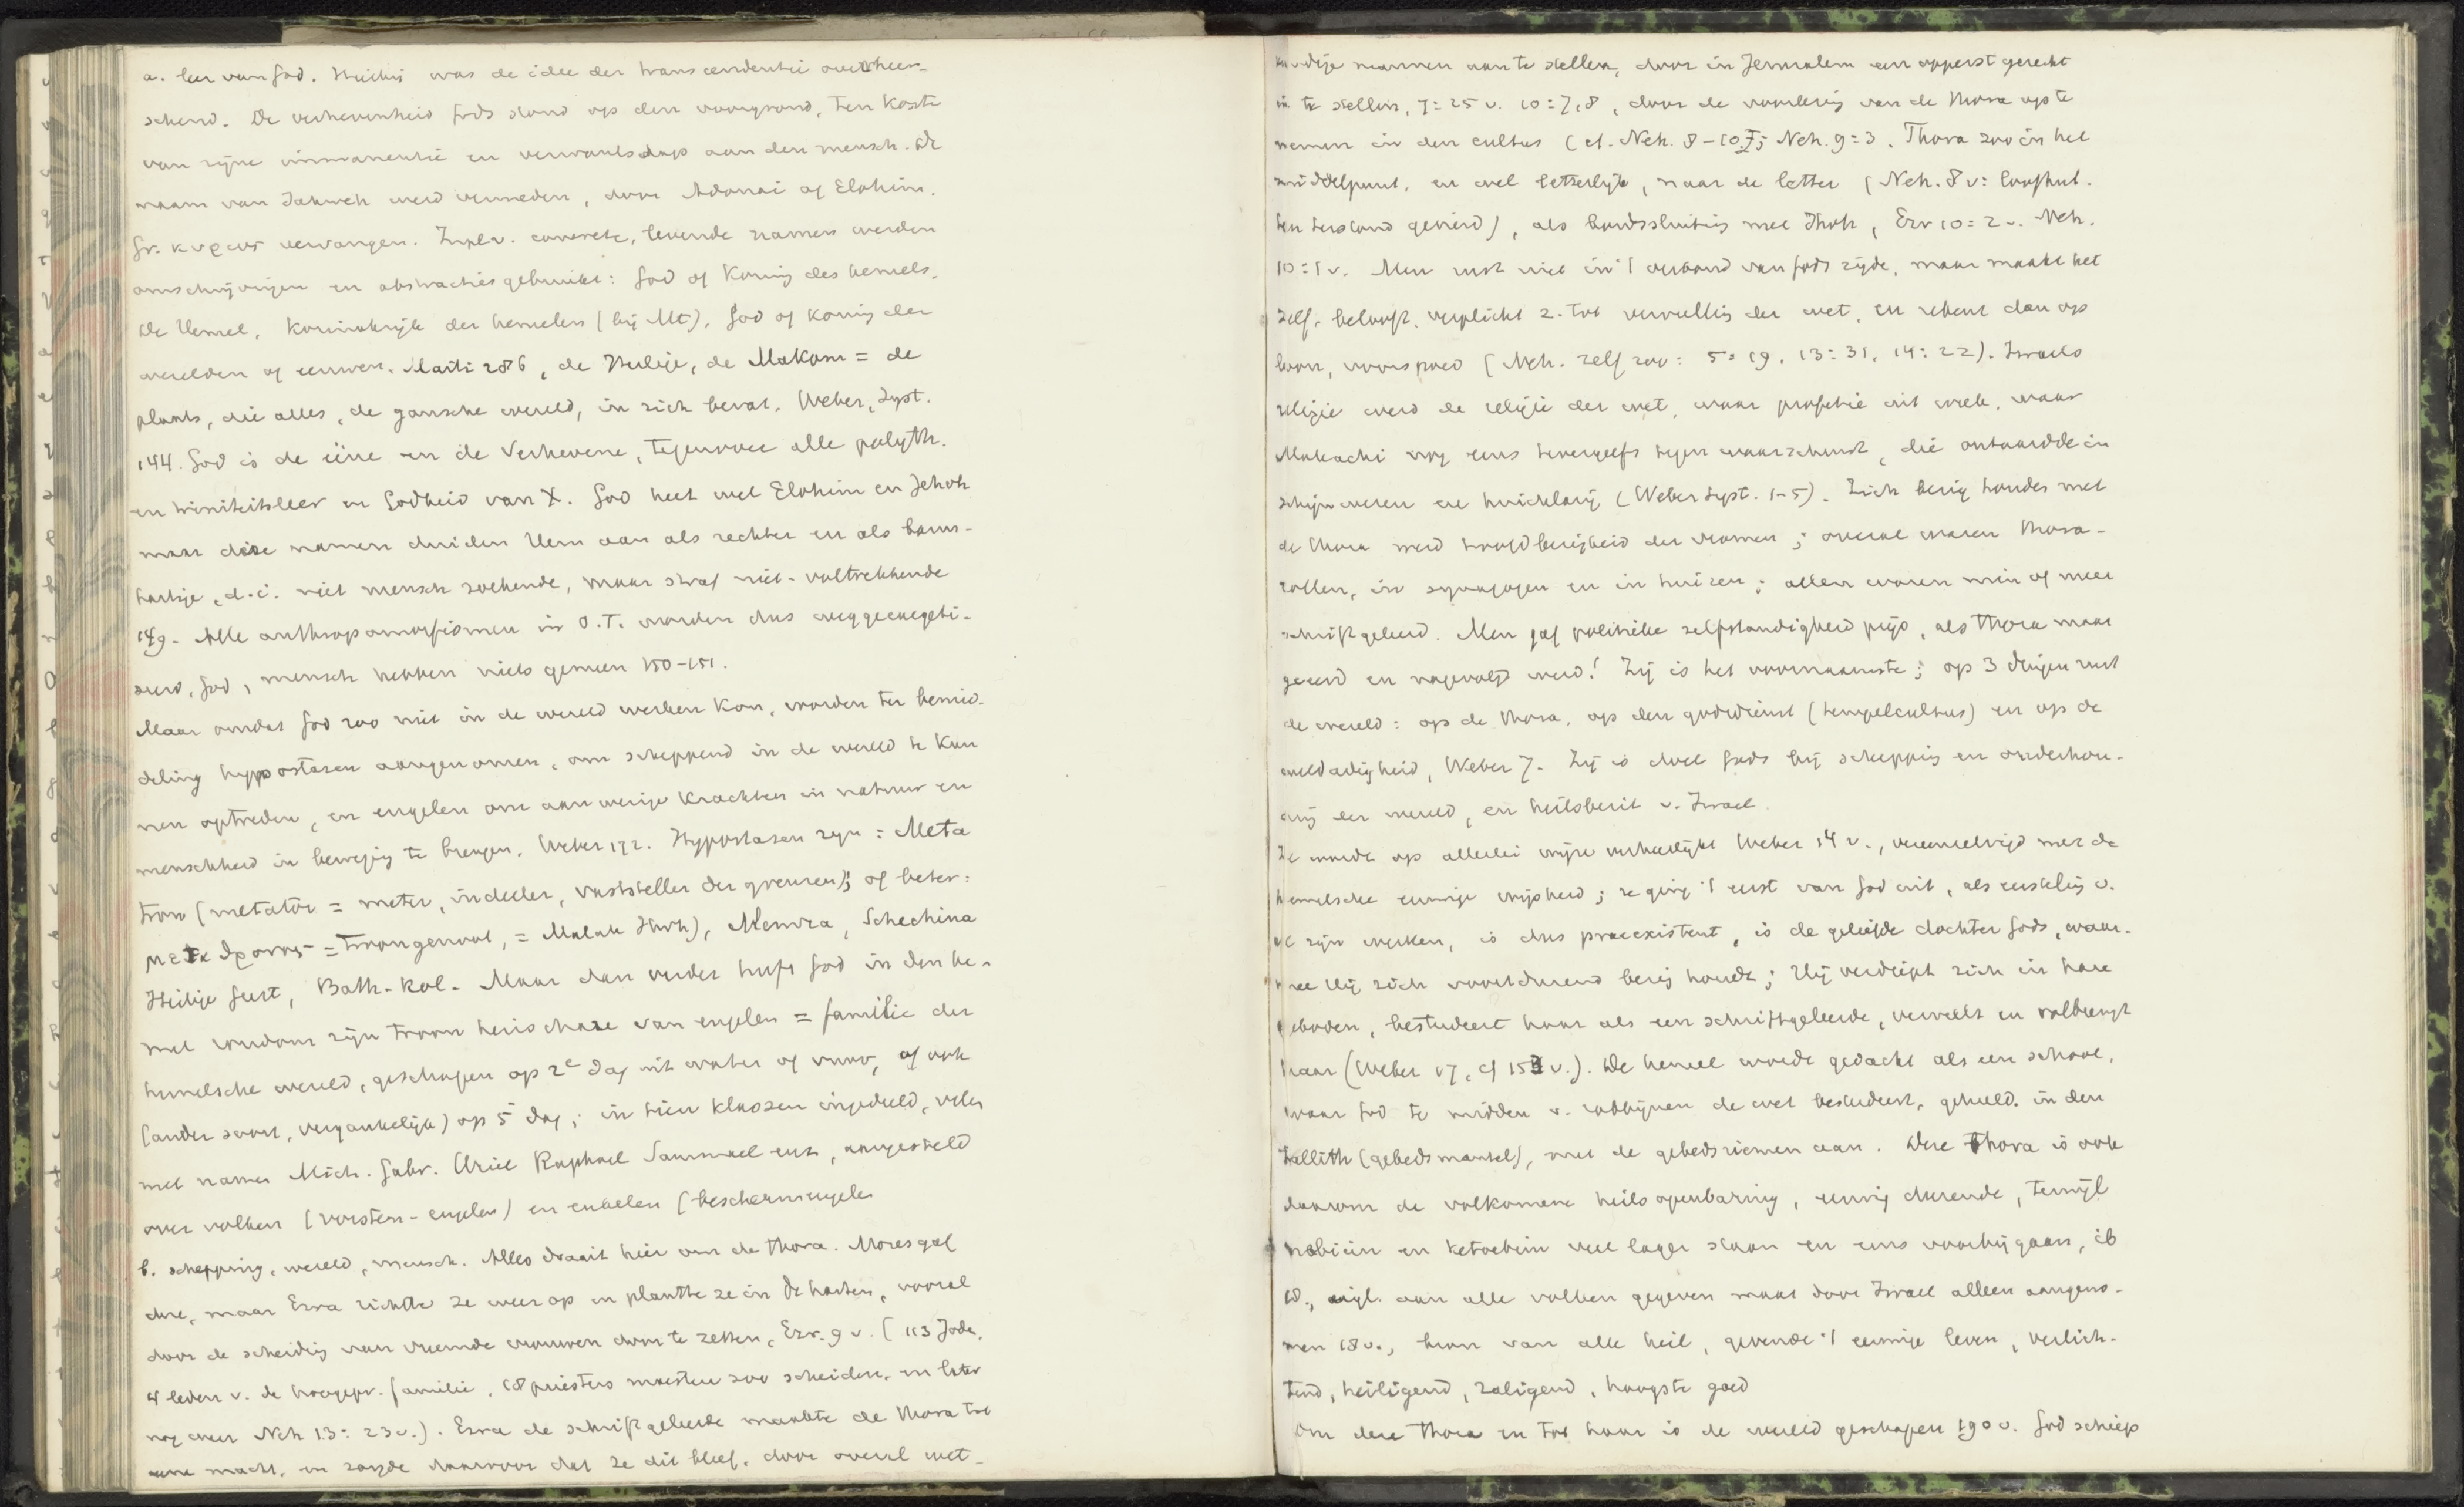 a. leer van God. Hierbij was de idee der transcendentie overheer-
schend. De verhevenheid Gods stond op den voorgrond, ten koste
van zijne immanentie en verwantschap aan den mensch. De
naam van Jahweh werd vermeden, door Adonai of Elohim.
Gr. κυριος vervangen. In pl. v. concrete, levende namen werden
omschrijvingen en abstracties gebruikt: God of Koning des hemels.
De Hemel, Koninkrijk der hemelen (bij Mt), God of Koning der
werelden of eeuwen. Marti 286, de Heilige, de Makom = de
plaats, die alles, de gansche wereld, in zich bevat. Weber, Syst.
144. God is de eene en de Verhevene, tegenover alle polyth.
en triniteitsleer en Godheid van X. God heet wel Elohim en Jehovh
maar deze namen duiden Hem aan als rechter en als barm-
hartige, d.i. niet mensch zoekende, maar straf niet-voltrekkende
149. Alle anthropomorfismen in O.T. worden dus weggeexegeti-
seerd, God, mensch hebben niets gemeen 150-151.
Maar omdat God zoo niet in de wereld werken kon, worden ter bemid-
deling hypostasen aangenomen, om scheppend in de wereld te kun
nen optreden, en engelen om aanwezige krachten in natuur en
menschheid in beweging te brengen. Weber 172. Hypostasen zijn: Meta
tron (metator = meter, indeeler, vaststeller der grenzen); of beter:
μεταθρονος = troongenoot, = Malak Jhvh), Memra, Schechina
Heilige Geest, Bath-kol. Maar dan verder heeft God in den he-
mel rondom zijn troon heirschare van engelen = familie der
hemelsche wereld, geschapen op 2e dag uit water of vuur, of ook
(ander soort, vergankelijk) op 5e dag; in tien klassen ingedeeld, velen
met namen Mich. Gabr. Uriel Raphael Sammael enz, aangesteld
over volken (vorsten-engelen) en enkelen (beschermengelen
b. schepping, wereld, mensch. Alles draait hier om de thora. Mozes gaf
deze, maar Ezra richtte ze weer op en plantte ze in de harten, vooral
door de scheiding van vreemde vrouwen door te zetten, Ezr. 9 v. (113 Joden,
4 leden v. de hoogepr. familie, 18 priesters moesten zoo scheiden, en later
nog weer Neh 13:23 v.). Ezra de schriftgeleerde maakte de thora tot
eene macht, en zorgde daarvoor dat ze dit bleef, door overal wet-
kundige mannen aan te stellen, door in Jeruzalem een opperst gerecht
in te stellen, 7:25 v. 10:7,8, door de voorlezing van de thora op te
nemen in den cultus (cf. Neh. 8-10; Neh. 9:3. Thora zoo in het
middelpunt, en wel letterlijk, naar de letter (Neh. 8 v: loofhut.
ten terstond gevierd), als bondssluiting met Jhvh, Ezr 10:2 v. Neh.
10:1 v. Men rust niet in 't verbond van Gods zijde, maar maakt het
zelf, belooft, verplicht z. tot vervulling der wet, en rekent dan op
loon, voorspoed (Neh. zelf zoo: 5:19, 13:31, 14:22). Israels
religie werd de religie der wet, waar profetie uit week, waar
Maleachi nog eens tevergeefs tegen waarschuwt, die ontaardde in
schijnwezen en huichelarij (Weber Syst. 1-5). Zich bezig houden met
de thora werd hoofdbezigheid der vromen; overal waren thora-
rollen, in synagogen en in huizen; allen waren min of meer
schriftgeleerd. Men gaf politieke zelfstandigheid prijs, als thora maar
geeerd en nagevolgd werd! Zij is het voornaamste; op 3 dingen rust
de wereld: op de thora, op den godsdienst (tempelcultus) en op de
weldadigheid, Weber 7. Zij is doel Gods bij schepping en onderhou-
ding der wereld, en heilsbezit v. Israel.
Ze wordt op allerlei wijze verheerlijkt Weber 14 v., vereenzelvigd met de
hemelsche eeuwige wijsheid; ze ging 't eerst van God uit, als eersteling v.
al zijn werken, is dus praeexistent, is de geliefde dochter Gods, waar-
mee Hij zich voortdurend bezig houdt; Hij verdiept zich in hare
geboden, bestudeert haar als een schriftgeleerde, vervult en volbrengt
haar (Weber 17, cf 153 v.). De hemel wordt gedacht als een school,
waar God te midden v. rabbijnen de wet bestudeert, gehuld in den
tallith (gebedsmantel), met de gebedsriemen aan. Deze thora is ook
daarom de volkomene heilsopenbaring, eeuwig durende, terwijl
nebiim en ketoebim veel lager staan en eens voorbijgaan, ib
18., wijl. aan alle volken gegeven maar door Israel alleen aangeno-
men 18 v., bron van alle heil, gevende 't eeuwige leven, verlich-
tend, heiligend, zaligend, hoogste goed
Om deze thora en tot haar is de wereld geschapen 190 v. God schiep